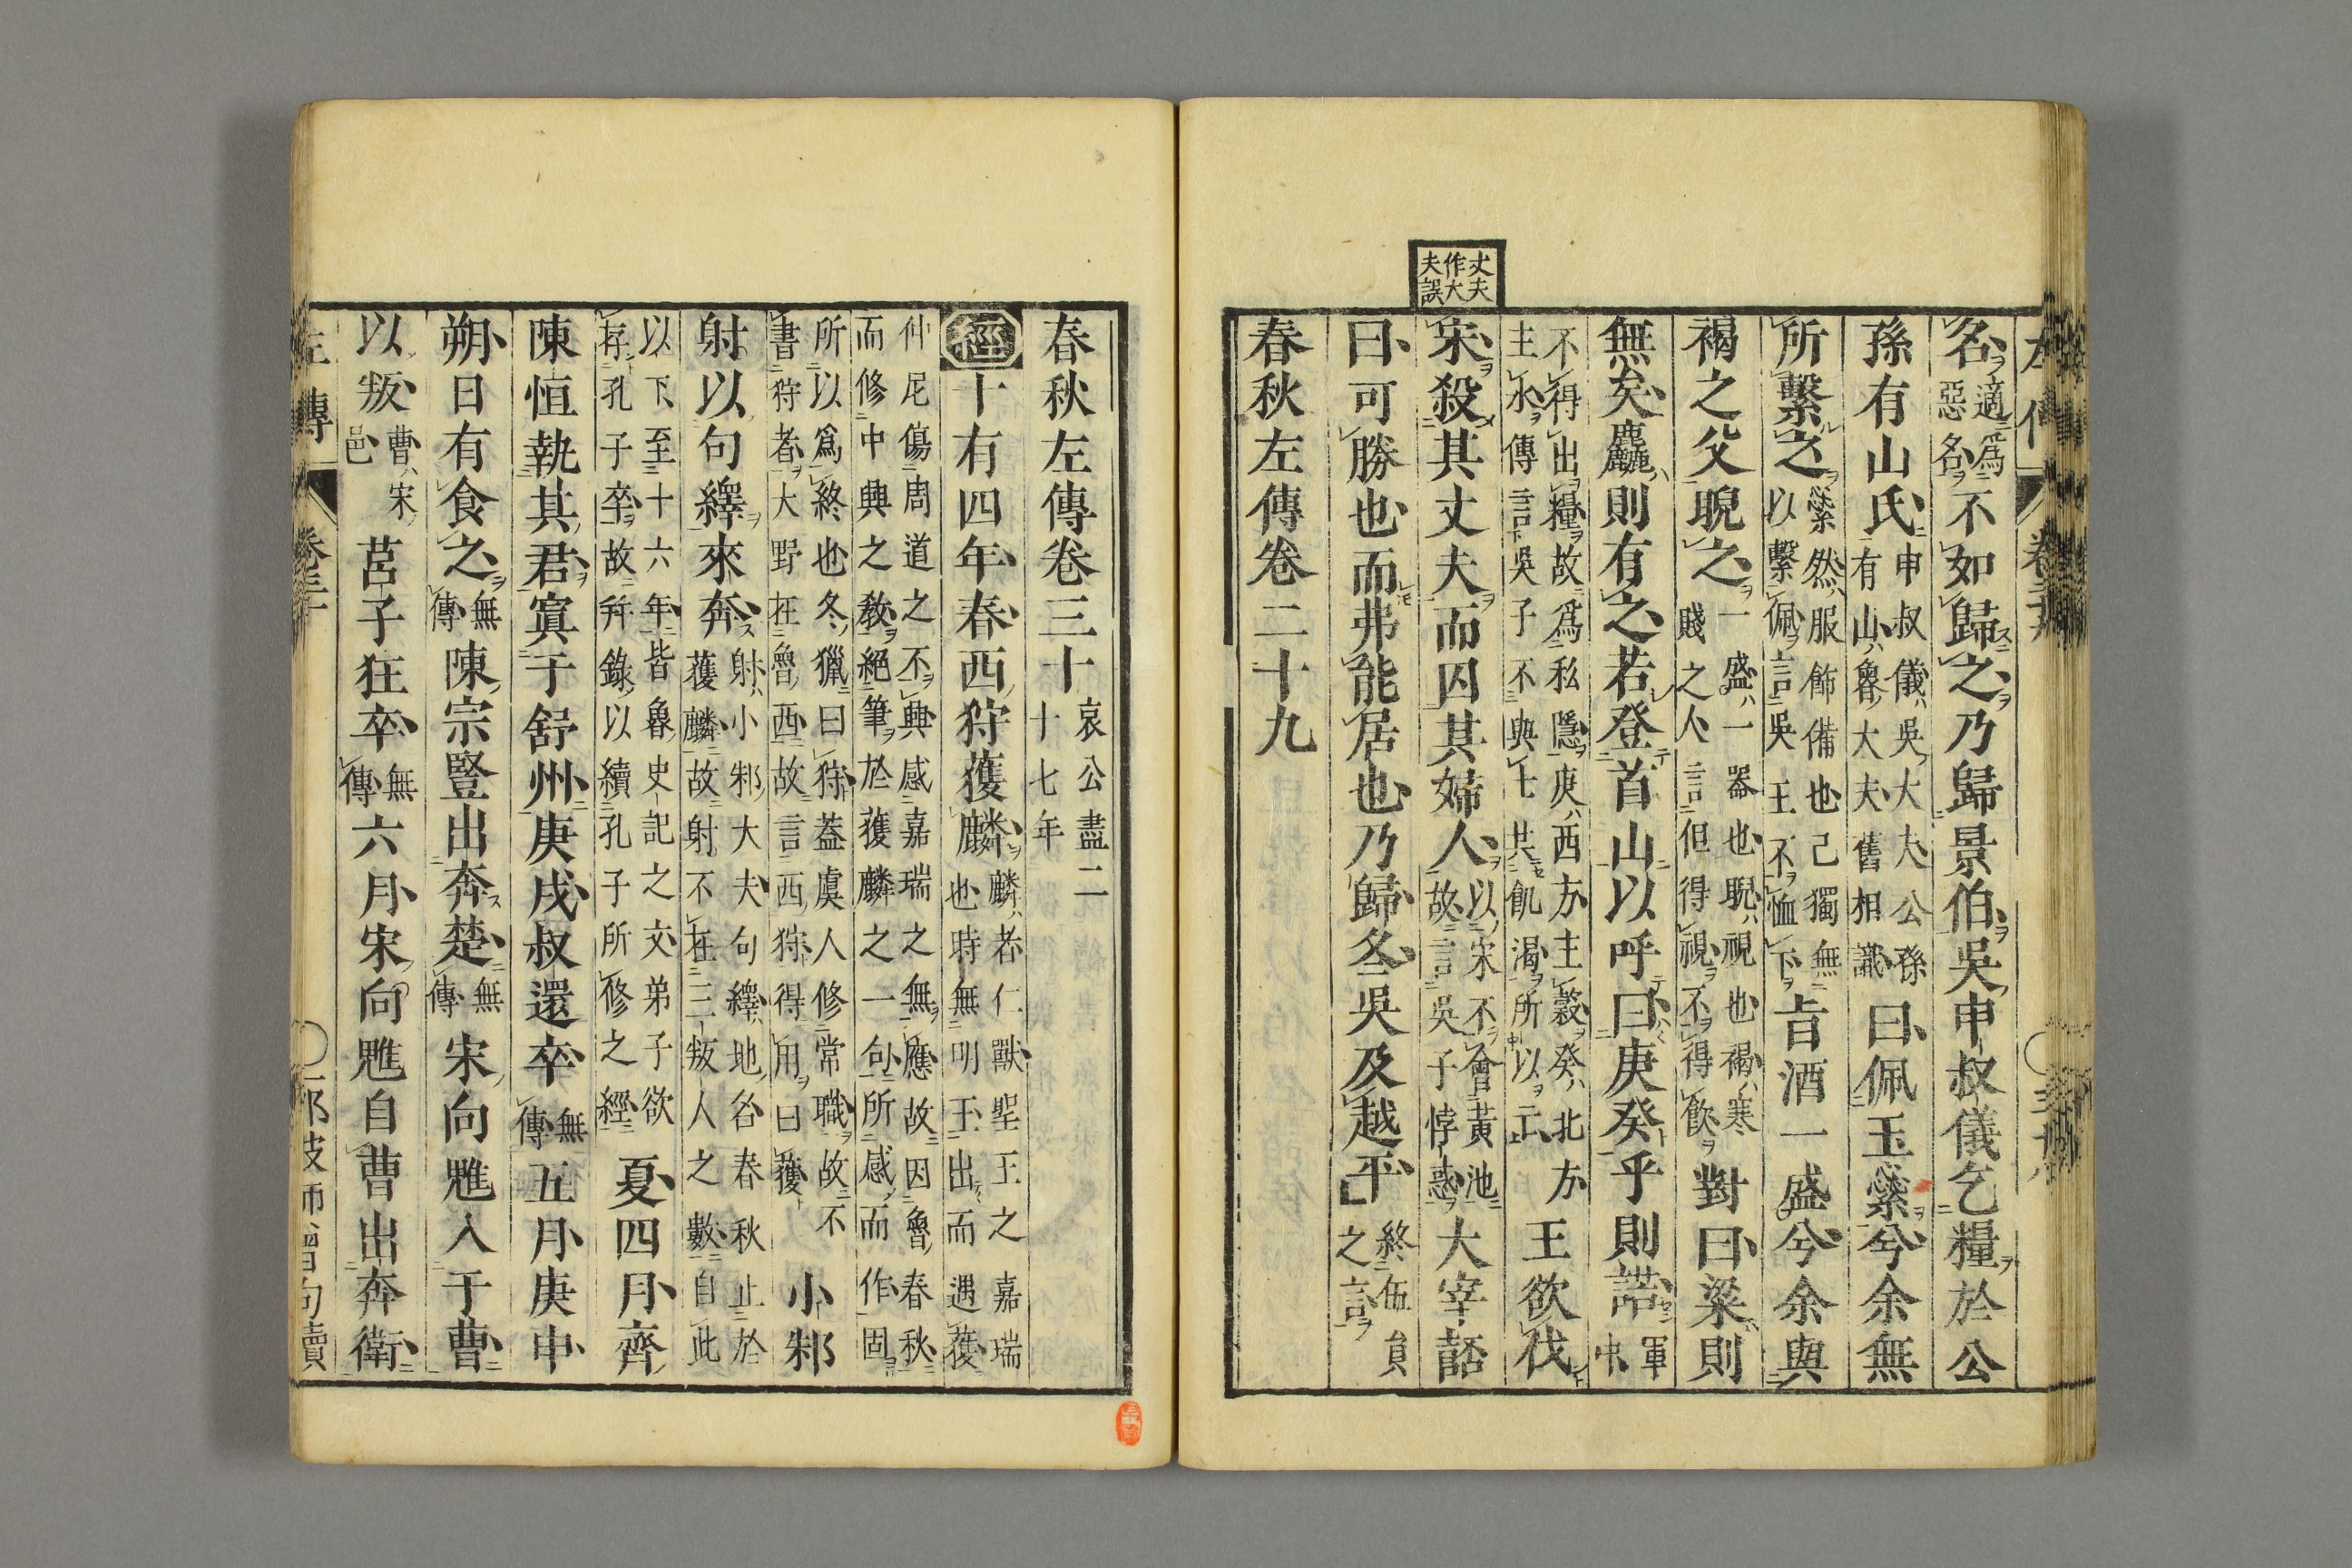 丈夫
作大
夫誤
名適爲惡名不如歸之乃歸景伯吳申叔儀乞糧於公
孫有山氏申叔儀吳大夫公孫有山魯大夫舊相識曰佩玉繠兮余無
所繫之繠然服飾備也己獨無以繫佩言吳王不恤下旨酒一盛兮余與
褐之父睨之一盛一器也睨視也褐寒賤之人言但得視不得飲對曰粱則
無矣麤則有之若登首山以呼曰庚癸乎則諾軍中
不得出糧故爲私隱庚西方主穀癸北方主水傳言吳子不與士共飢渴所以亡王欲伐
宋殺其丈夫而囚其婦人以宋不會黃池故言吳子悖惑大宰嚭
曰可勝也而弗能居也乃歸冬吳及越平終伍員之言
春秋左傳卷二十九
春秋左傳卷三十哀公盡二十七年
經十有四年春西狩獲麟麟者仁獸聖王之嘉瑞也時無明王出而遇獲
仲尼傷周道之不興感嘉瑞之無應故因魯春秋而修中興之教絕筆於獲麟之一句所感而作固
所以爲終也冬獵曰狩蓋虞人修常職故不書狩者大野在魯西故言西狩得用曰獲小邾
射以句繹來奔射小邾大夫句繹地名春秋止於獲麟故射不在三叛人之數自此
以下至十六年皆魯史記之文弟子欲存孔子卒故并錄以續孔子所修之經夏四月齊
陳恒執其君寘于舒州庚戌叔還卒無傳五月庚申
朔日有食之無傳陳宗豎出奔楚無傳宋向魋入于曹
以叛曹宋邑莒子狂卒無傳六月宋向魋自曹出奔衛
左傳 卷三十